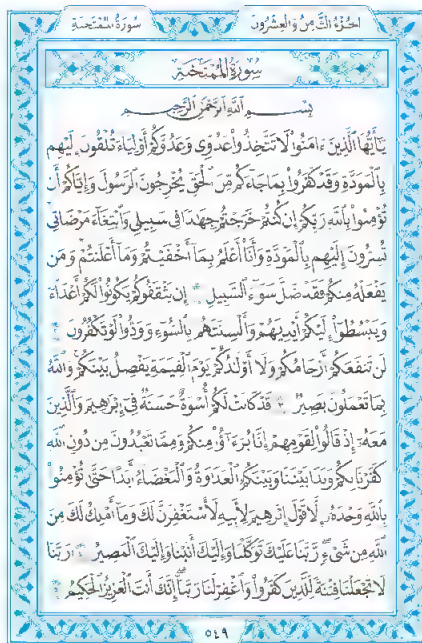 الجزء الثامن والعشرون
سورة الممتحنة
سُورَةُ المُمتَحنَةِ
بِسۡمِ ٱللَّهِ ٱلرَّحۡمَٰنِ ٱلرَّحِيمِ
يَٰٓأَيُّهَا ٱلَّذِينَ ءَامَنُواْ لَا تَتَّخِذُواْ عَدُوِّي وَعَدُوَّكُمۡ أَوۡلِيَآءَ تُلۡقُونَ إِلَيۡهِم
بِٱلۡمَوَدَّةِ وَقَدۡ كَفَرُواْ بِمَا جَآءَكُم مِّنَ ٱلۡحَقِّ يُخۡرِجُونَ ٱلرَّسُولَ وَإِيَّاكُمۡ أَن
تُؤۡمِنُواْ بِٱللَّهِ رَبِّكُمۡ إِن كُنتُمۡ خَرَجۡتُمۡ جِهَٰدٗا فِي سَبِيلِي وَٱبۡتِغَآءَ مَرۡضَاتِي
تُسِرُّونَ إِلَيۡهِم بِٱلۡمَوَدَّةِ وَأَنَا۠ أَعۡلَمُ بِمَآ أَخۡفَيۡتُمۡ وَمَآ أَعۡلَنتُمۡ وَمَن
يَفۡعَلۡهُ مِنكُمۡ فَقَدۡ ضَلَّ سَوَآءَ ٱلسَّبِيلِ إِن يَثۡقَفُوكُمۡ يَكُونُواْ لَكُمۡ أَعۡدَآءٗ
وَيَبۡسُطُوٓاْ إِلَيۡكُمۡ أَيۡدِيَهُمۡ وَأَلۡسِنَتَهُم بِٱلسُّوٓءِ وَوَدُّواْ لَوۡ تَكۡفُرُونَ
لَن تَنفَعَكُمۡ أَرۡحَامُكُمۡ وَلَآ أَوۡلَٰدُكُمۡ يَوۡمَ ٱلۡقِيَٰمَةِ يَفۡصِلُ بَيۡنَكُمۡ وَٱللَّهُ
بِمَا تَعۡمَلُونَ بَصِيرٞ قَدۡ كَانَتۡ لَكُمۡ أُسۡوَةٌ حَسَنَةٞ فِيٓ إِبۡرَٰهِيمَ وَٱلَّذِينَ
مَعَهُۥٓ إِذۡ قَالُواْ لِقَوۡمِهِمۡ إِنَّا بُرَءَٰٓؤُاْ مِنكُمۡ وَمِمَّا تَعۡبُدُونَ مِن دُونِ ٱللَّهِ
كَفَرۡنَا بِكُمۡ وَبَدَا بَيۡنَنَا وَبَيۡنَكُمُ ٱلۡعَدَٰوَةُ وَٱلۡبَغۡضَآءُ أَبَدًا حَتَّىٰ تُؤۡمِنُواْ
بِٱللَّهِ وَحۡدَهُۥٓ إِلَّا قَوۡلَ إِبۡرَٰهِيمَ لِأَبِيهِ لَأَسۡتَغۡفِرَنَّ لَكَ وَمَآ أَمۡلِكُ لَكَ مِنَ
ٱللَّهِ مِن شَيۡءٖ رَّبَّنَا عَلَيۡكَ تَوَكَّلۡنَا وَإِلَيۡكَ أَنَبۡنَا وَإِلَيۡكَ ٱلۡمَصِيرُ رَبَّنَا
لَا تَجۡعَلۡنَا فِتۡنَةٗ لِّلَّذِينَ كَفَرُواْ وَٱغۡفِرۡ لَنَا رَبَّنَآ إِنَّكَ أَنتَ ٱلۡعَزِيزُ ٱلۡحَكِيمُ
٥٤٩